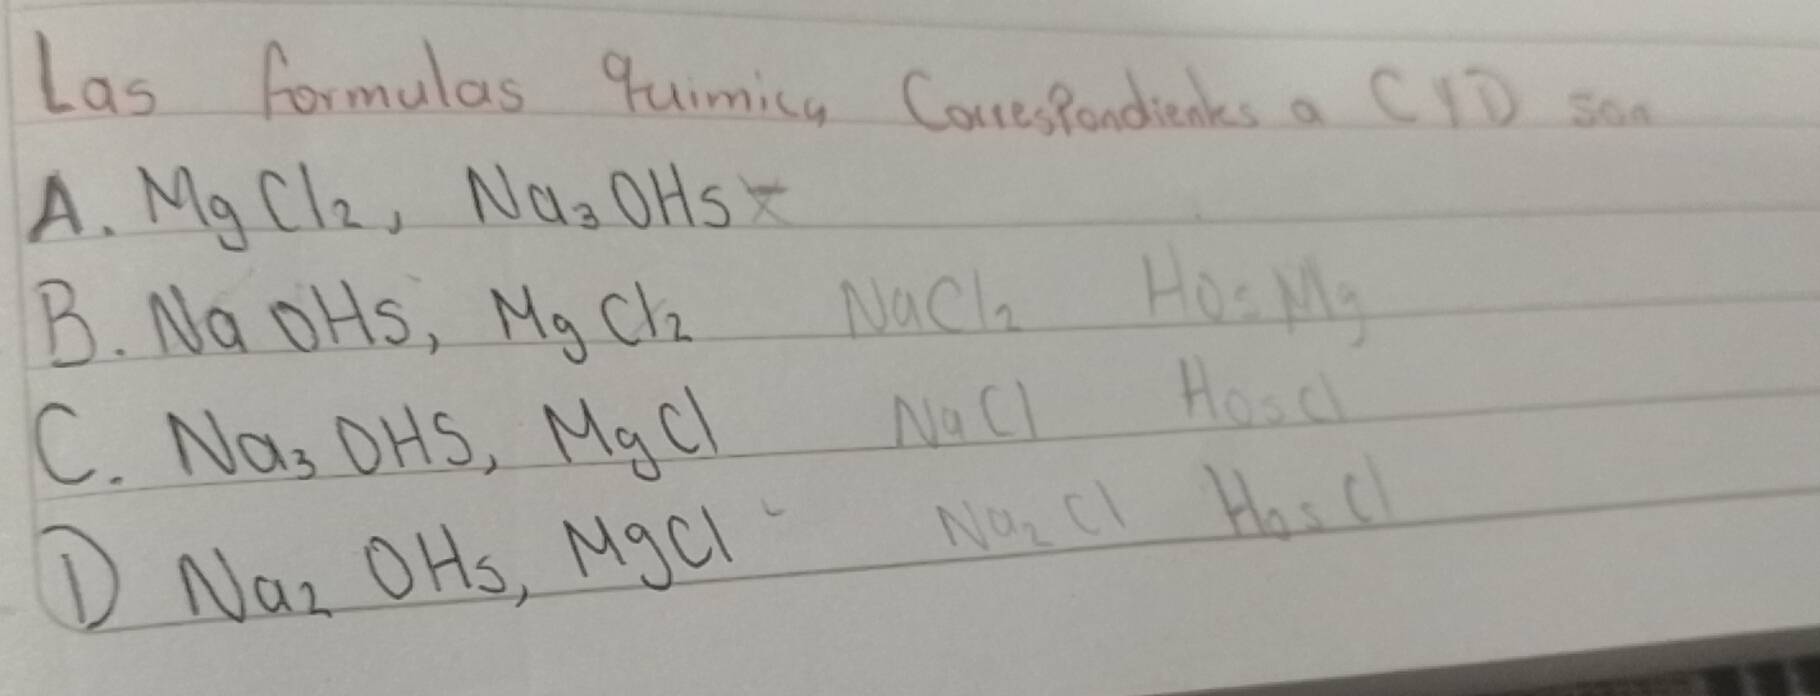 Las formulas quimica Correspondientes a C Y D son
A. MgCl2, Na3 OHS x
B. Na OHS, MgCl2 NaCl2 HOsMg
C. Na3 OHS, MgCl NaCl HOsCl
D Na2 OHs, MgCl Na2Cl HOsCl